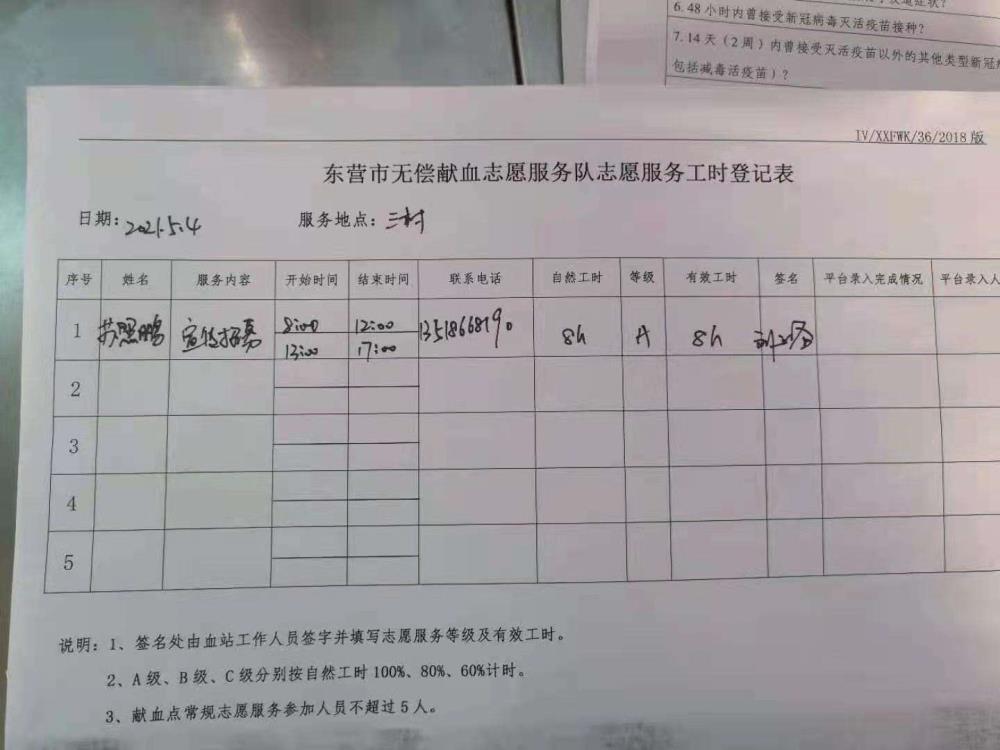 6. 48小时内曾接受新冠病毒灭活疫苗接种？
7. 14天（2周）内曾接受灭活疫苗以外的其他类型新冠
包括减毒活疫苗）？
IV/XXFWK/36/2018版
东营市无偿献血志愿服务队志愿服务工时登记表
日期：2021.5.4 服务地点：三村
序号 姓名 服务内容 开始时间 结束时间 联系电话 自然工时 等级 有效工时 签名 平台录入完成情况 平台录入人
1 苏照鹏 宣传招募 8:00 12:00 13518668190 8h A 8h
13:00 17:00
2
3
4
5
说明：1、签名处由血站工作人员签字并填写志愿服务等级及有效工时。
2、A级、B级、C级分别按自然工时100%、80%、60%计时。
3、献血点常规志愿服务参加人员不超过5人。